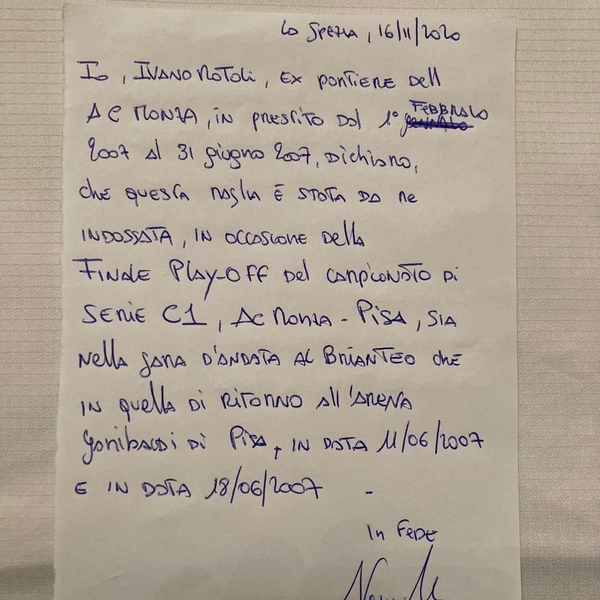 La Spezia, 16/11/2020
Io, IVANO ROTOLI, EX PORTIERE DELL
AC MONZA, IN PRESTITO DAL 1° FEBBRAIO
2007 AL 31 giugno 2007, DICHIARO,
CHE QUESTA MAGLIA È STATA DA ME
INDOSSATA, IN OCCASIONE DELLA
FINALE PLAY-OFF DEL CAMPIONATO DI
SERIE C1, AC MONZA - PISA, SIA
NELLA GARA D'ANDATA AL BRIANTEO CHE
IN QUELLA DI RITORNO ALL'ARENA
GARIBALDI DI PISA, IN DATA 11/06/2007
E IN DATA 18/06/2007 -
In FEDE